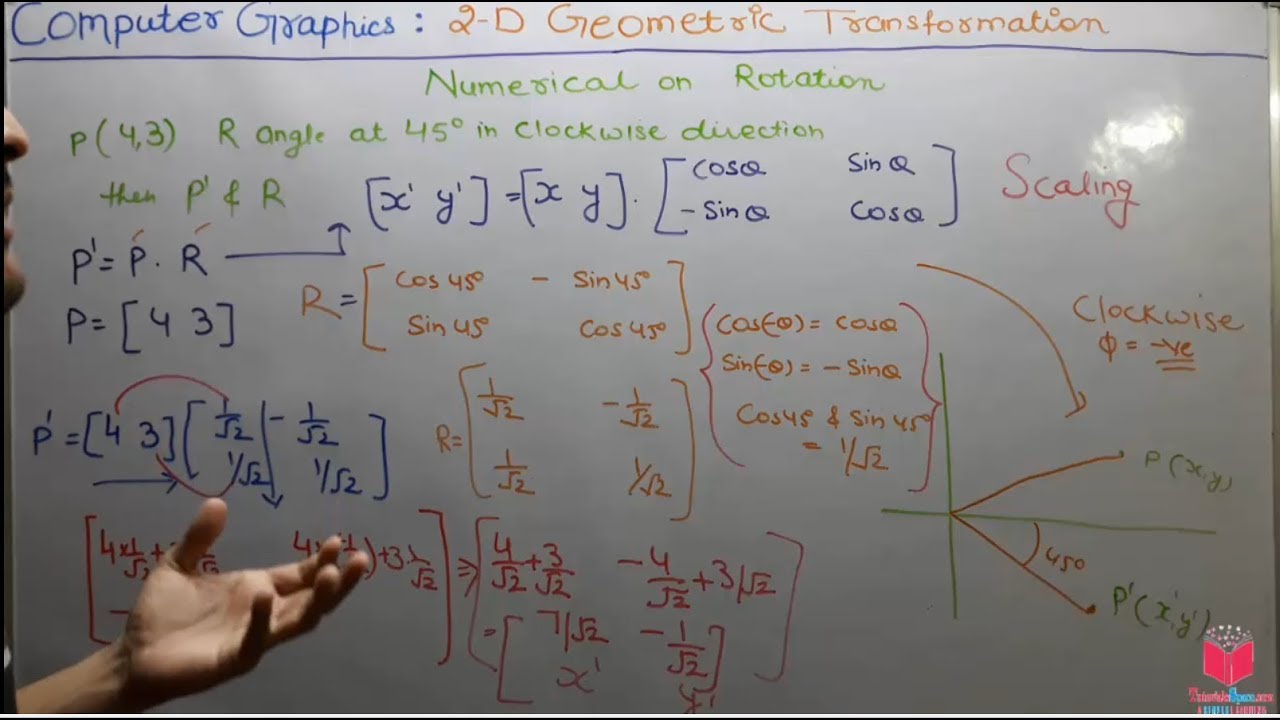 Computer Graphics : 2-D Geometric Transformation
Numerical on Rotation
P(4,3) R angle at 45° in clockwise direction
then P' & R
[x' y'] = [x y] . [cosθ sinθ
-sinθ cosθ]
Scaling
P' = P . R
P = [4 3]
R = [cos45° - sin45°
sin45 cos45°]
cos(-θ) = cosθ
sin(-θ) = - sinθ
cos45 & sin45°
= 1/√2
Clockwise
ϕ = -ve
P' = [4 3] [1/√2 - 1/√2
1/√2 1/√2]
R = [1/√2 -1/√2
1/√2 1/√2]
P(x,y)
450
P'(x',y')
[4×1/√2+ +3 1/√2] ⇒ [4/√2+3/√2 -4/√2+3/√2]
= [7/√2 -1/√2]
x' y'